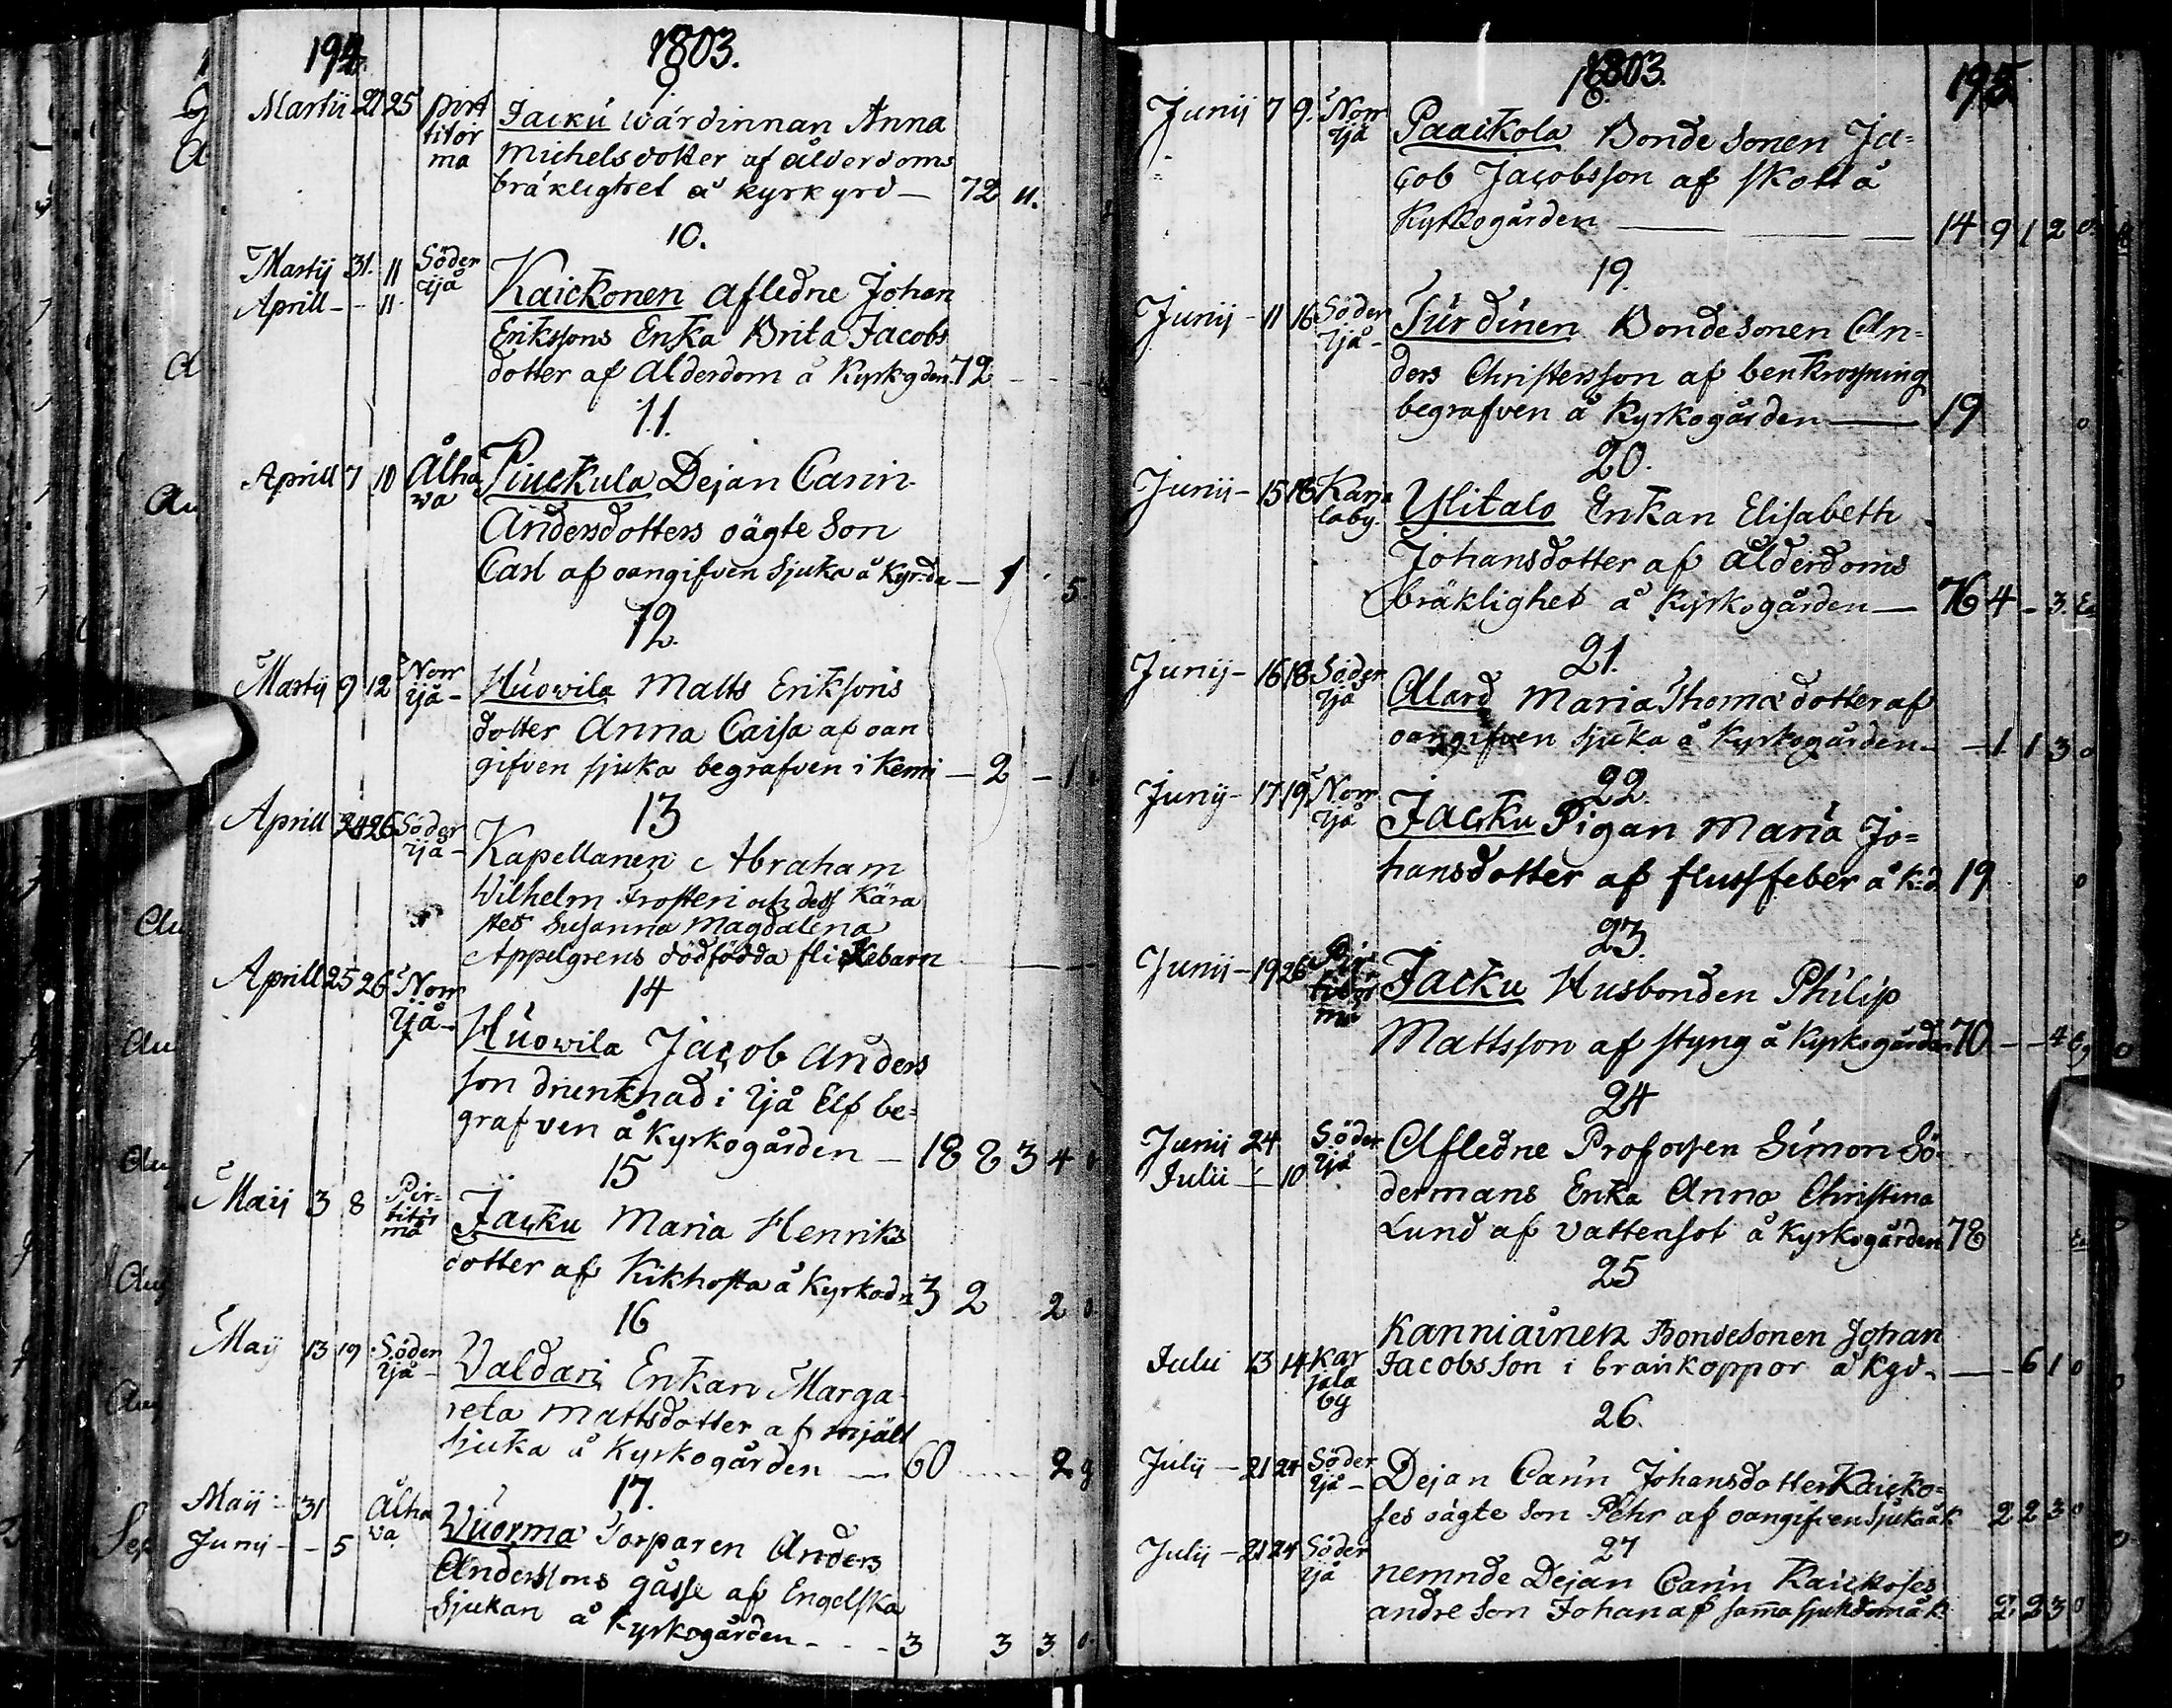 194.
1803.
9.
Martii 21 25 Pirt Jacku wärdinnan Anna
titör Michelsdotter af ålderdoms
ma bräklighet å kyrkgrd — 72 11.
10.
Martij 31. 11 Söder Kaickonen afledne Johan
Aprill - - 11. ijå
Erikssons Enka Brita Jacobs
dotter af Alderdom å Kyrkgden 72
11.
Aprill 7 10 Alha Piuskula Dejan Carin
va Andersdotters oägte Son
Carl af oangifven Sjuka å Kyr:de — 1 5
12.
Martij 9 12 Norr Huowila Matts Eriksons
ijå - dotter Anna Caisa af oan
gifven sjuka begrafven i Kemi — 2 - 1
13
Aprill 24 26 Söder Kapellanen Abraham
ijå - Wilhelm Frosteri och dess Kära
stes Susanna Magdalena
Appelgrens dödfödda flickebarn
14
Aprill 25 26 Norr Huowila Jacob Anders
ijå - son drunknad i ijå Elf be=
grafven å Kyrkogården — 18 8 3 4
15
Maij 3 8 Pir= Jacku Maria Henriks
titör dotter af Kikhosta å Kyrkod 3 2 2
ma
16
Maij 13 19 Söder Valdari Enkan Marga
ijå - reta Mattsdotter af mjält
sjuka å Kyrkogården — 60 2
17.
Maij - 31 Alha Wuorma Torparen Anders
Junij - - 5 va Anderssons gåsse af Engelska
Sjukan å Kyrkogården - - - 3 3 3
1803.
195.
18.
Junij 7 9. Norr Paaikola Bonde Sonen Ja=
ijå cob Jacobsson af skott å
Kyrkogården — — 14 9 1 2
19.
Junij - 11 16 Söder Turdinen Bondesonen An=
ijå - ders Christersson af benkrossning
begrafven å Kyrkogården — 19
20.
Junij - 15 18 Karja Ylitalo Enkan Elisabeth
laby. Johansdotter af Alderdoms
bräklighet å Kyrkogården — 76 4 - 3.
21.
Junij - 16 18 Söder Alard Maria Thomædotter af
ijå oangifven Sjuka å Kyrkogården - - 1 1 3 0
22.
Junij - 17 19 Norr Jacku Pigan Maria Jo=
ijå hansdotter af flussfeber å K:d 19 0
23.
Junij - 19 26 Pir Jacku Husbonden Philip
titör Mattsson af styng å Kyrkogården 70 - - 4
ma
24
Junij 24 Söder Afledne Profossen Simon Sö=
Julii - 10 ijå dermans Enka Anna Christina
Lund af Vattensot å Kyrkogården 78
25
Kanniainen Bondesonen Johan
Julii 13 14 Kar Jacobsson i brankoppor å Kgd. — 6 1 0
jala
by
26.
Julij - 21 24 Söder Dejan Carin Johansdotter Kaicko=
ijå - ses oägte Son Pehr af oangifven Sjuka å K 2 2 3 0
27
Julij - 21 24 Söder nemnde Dejan Carin Kaickoses
ijå andre Son Johan af samma sjukdom å K 2 2 3 0